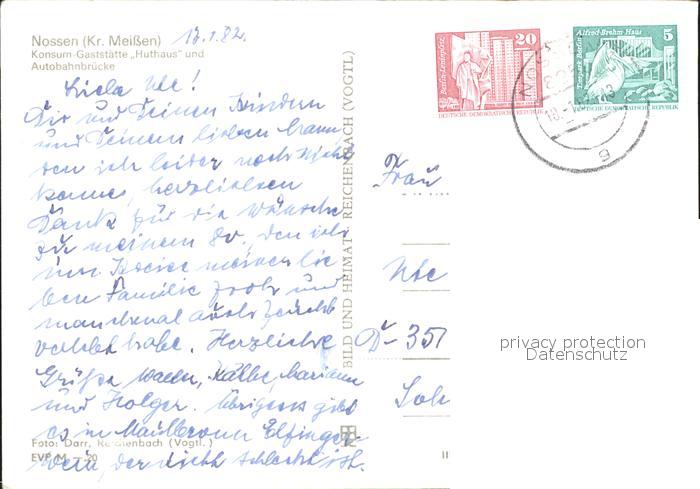 Nossen (Kr. Meißen)
Konsum-Gaststätte „Huthaus" und
Autobahnbrücke
17.1.82.
Liebe Ute!
Dir und Deinen Kindern
und Deinem lieben Mann
den ich leider noch nicht
kenne, herzlichen
Dank für die Wünsche
zu meinem 80., den ich
im Kreise meiner lie
ben Familie froh und
manchmal auch
verlebt habe. Herzliche
Grüße Käthe, Mariann
und Holger. Übrigens gibt
es in Maulbronn Elfinger
Wein, der nicht schlecht ist.
Foto: Darr, Reichenbach (Vogtl.)
EVP M —,20
BILD UND HEIMAT REICHENBACH (VOGTL)
Berlin-Leninplatz
20
DEUTSCHE DEMOKRATISCHE REPUBLIK
Alfred-Brehm-Haus
Tierpark Berlin
5
DEUTSCHE DEMOKRATISCHE REPUBLIK
Frau
Ute
D-351
privacy protection
Datenschutz